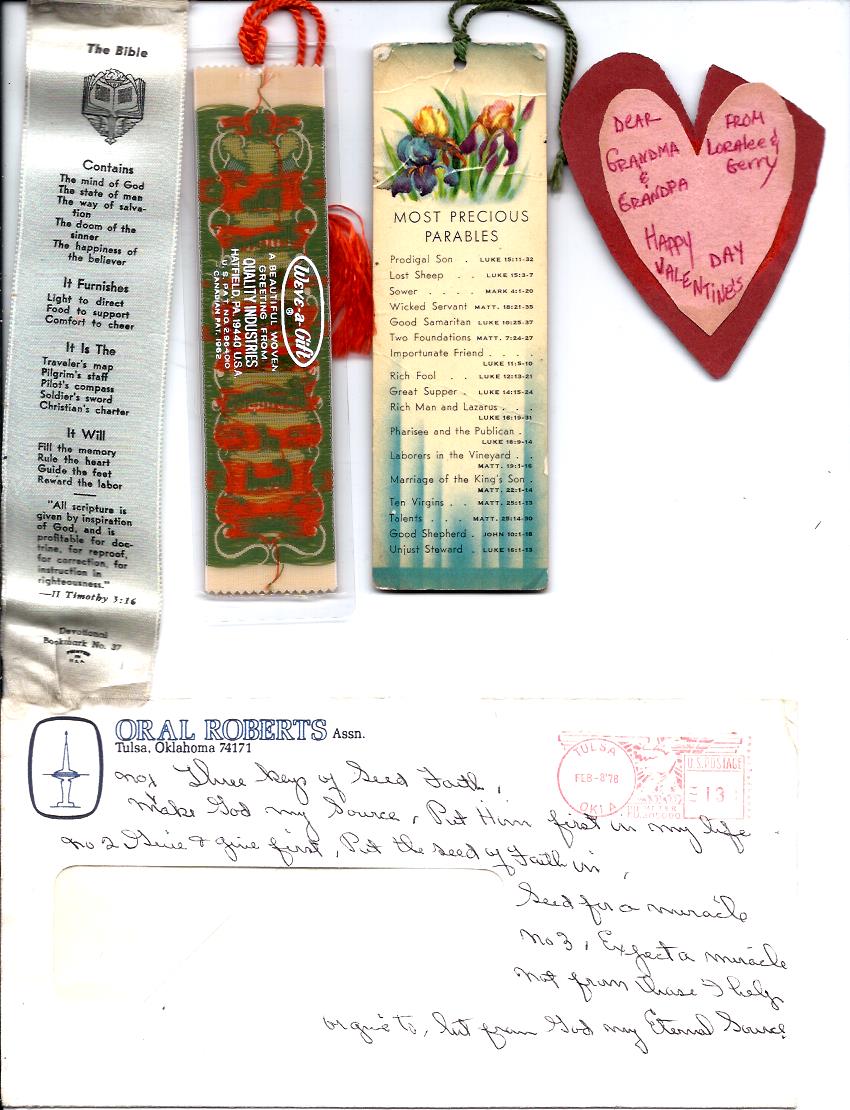 The Bible
Contains
The mind of God
The state of man
The way of salva-
tion
The doom of the
sinner
The happiness of
the believer
It Furnishes
Light to direct
Food to support
Comfort to cheer
It Is The
Traveler's map
Pilgrim's staff
Pilot's compass
Soldier's sword
Christian's charter
It Will
Fill the memory
Rule the heart
Guide the feet
Reward the labor
"All scripture is
given by inspiration
of God, and is
profitable for doc-
trine, for reproof,
for correction, for
instruction in
righteousness."
—II Timothy 3:16
Devotional
Bookmark No. 37
PRINTED
IN
U.S.A.
Weve-a-Gift
®
A BEAUTIFUL WOVEN
GREETING FROM
QUALITY INDUSTRIES
HATFIELD, PA. 19440 U.S.A.
U.S. PAT. NO. 296400
CANADIAN PAT. 1962
MOST PRECIOUS
PARABLES
Prodigal Son . LUKE 15:11-32
Lost Sheep . . LUKE 15:3-7
Sower . . . . MARK 4:1-20
Wicked Servant MATT. 18:21-35
Good Samaritan LUKE 10:25-37
Two Foundations MATT. 7:24-27
Importunate Friend . . .
LUKE 11:5-10
Rich Fool . . LUKE 12:13-21
Great Supper . LUKE 14:15-24
Rich Man and Lazarus . .
LUKE 16:19-31
Pharisee and the Publican .
LUKE 18:9-14
Laborers in the Vineyard . .
MATT. 19:1-16
Marriage of the King's Son .
MATT. 22:1-14
Ten Virgins . . MATT. 25:1-13
Talents . . . MATT. 25:14-30
Good Shepherd . JOHN 10:1-18
Unjust Steward . LUKE 16:1-13
DEAR
GRANDMA
&
GRANDPA
FROM
Loralee &
Gerry
HAPPY
VALENTINES
DAY
ORAL ROBERTS Assn.
Tulsa, Oklahoma 74171
TULSA
FEB-8'78
OKLA
U.S. POSTAGE
13
no 1 Three keys of Seed Faith,
Make God my Source, Put Him first in my life
no 2 Give & give first, Put the seed of Faith in,
Seed for a miracle
no 3, Expect a miracle
not from those I help
or give to, but from God my Eternal Source